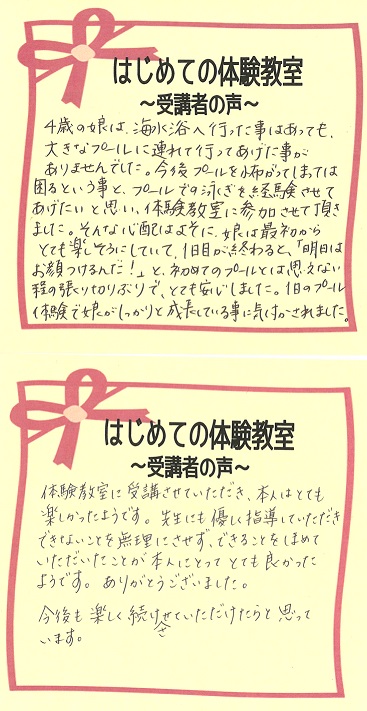 はじめての体験教室
～受講者の声～
4歳の娘は、海水浴へ行った事はあっても、
大きなプールに連れて行ってあげた事が
ありませんでした。今後プールを怖がってしまっては
困るという事と、プールでの泳ぎを経験させて
あげたいと思い、体験教室に参加させて頂き
ました。そんな心配はよそに、娘は最初から
とても楽しそうにしていて、1日目が終わると、「明日は
お顔つけるんだ！」と、初めてのプールとは思えない
程の張り切りぶりで、とても安心しました。1日のプール
体験で娘がしっかりと成長している事に気付かされました。
はじめての体験教室
～受講者の声～
体験教室に受講させていただき、本人はとても
楽しかったようです。先生にも優しく指導していただき
できないことを無理にさせず、できることをほめて
いただいたことが本人にとってとても良かった
ようです。ありがとうございました。
今後も楽しく続けさせていただけたらと思って
います。